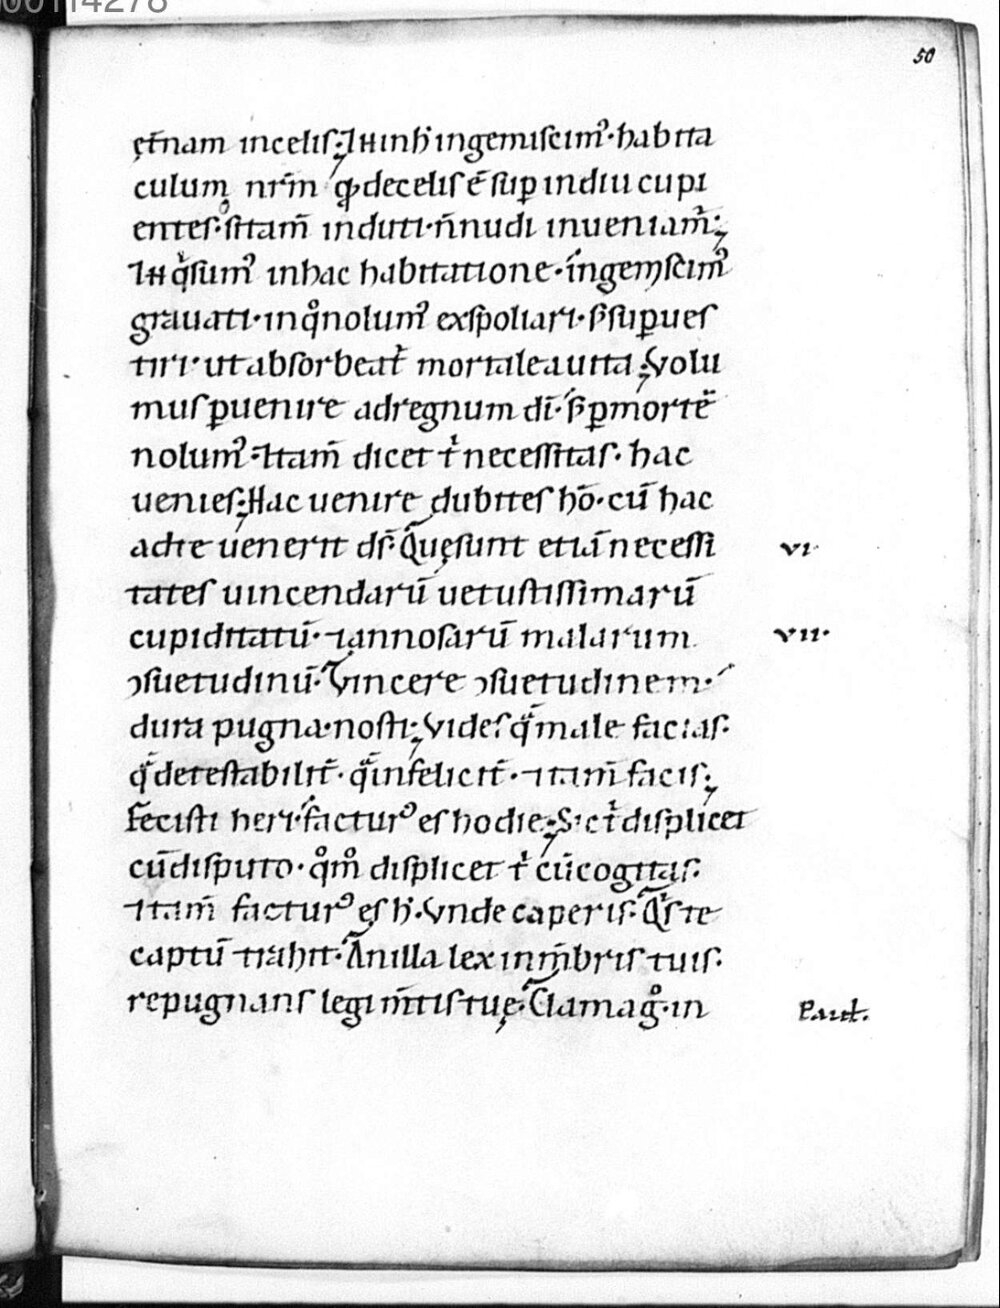 00114278
50
ęt̄nam incelis; Inhinh̄ingemiscim᾽·habita
culum nrm̄ qđ decelis ē sup̱ indui cupi
entes·sitam̄ induti·n̄nudi inueniam᷑;
Inqⁱsum᾽ inhac habitatione·ingemiscim᾽
grauati·inqͦnolum᾽ exspoliari·s̄sup̱ues
tiri·ut absorbeat᷑ mortale auita; Volu
mus p̱uenire adregnum dī·s̄ p̱mortē
nolum᾽·Itam̄ dicet tⁱ necessitas·hac
uenies; Hac uenire dubites hō·cū hac
adte uenerit ds̄·Quęsunt etiā necessi
VI·
tates uincendarū uetustissimarū
cupiditatū·⁊annosarū malarum
VII·
ɔsuetudinū·Vincere ɔsuetudinem·
dura pugna·nosti; Vides qͣ̄male facias·
qͣ̄detestabilit᷑·qͣ̄infelicit᷑·⁊tam̄ facis;
fecisti heri·factur᾽es hodie; Sic tⁱ displicet
cūdisputo·qͦmͦ displicet tⁱ cūcogitas·
⁊tam̄ factur᾽ es h̄·Vnde caperis·Qⁱs te
captū trahit·Anilla lex inm̄bris tuis·
repugnans legi m̄tis tuę·Clama gͦ·in
Paul.